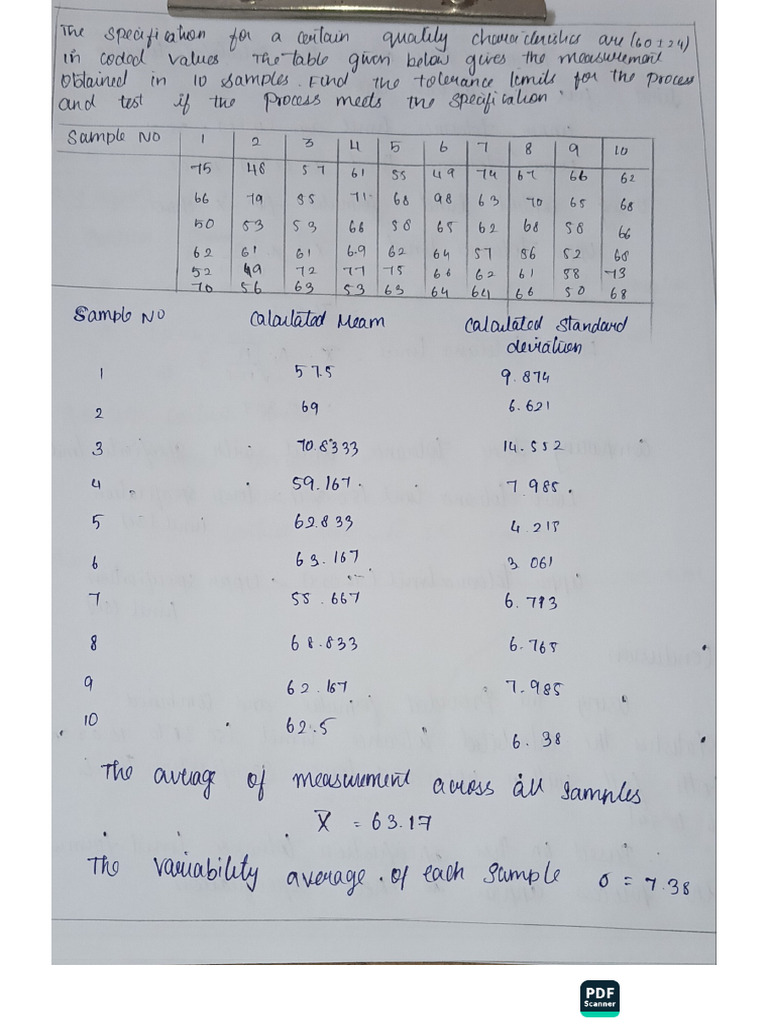 The specification for a certain quality characteristics are (60 ± 24)
in coded values The table given below gives the measurement
Obtained in 10 samples. Find the tolerance limits for the process
and test if the process meets the specification.
Sample NO 1 2 3 4 5 6 7 8 9 10
75 48 57 61 55 49 74 67 66 62
66 79 85 71 68 98 63 70 65 68
50 53 53 66 58 65 62 68 58 66
62 61 61 6.9 62 64 57 56 52 68
52 49 72 77 75 66 62 61 58 73
70 56 63 53 63 64 64 66 50 68
Sample NO Calculated Mean Calculated Standard
deviation
1 57.5 9.874
2 69 6.621
3 70.8333 14.552
4 59.167 7.985
5 62.833 4.215
6 63.167 3.061
7 55.667 6.713
8 68.833 6.765
9 62.167 7.985
10 62.5 6.38
The average of measurement across all samples
X̄ = 63.17
The variability average of each sample σ = 7.38
PDF
Scanner